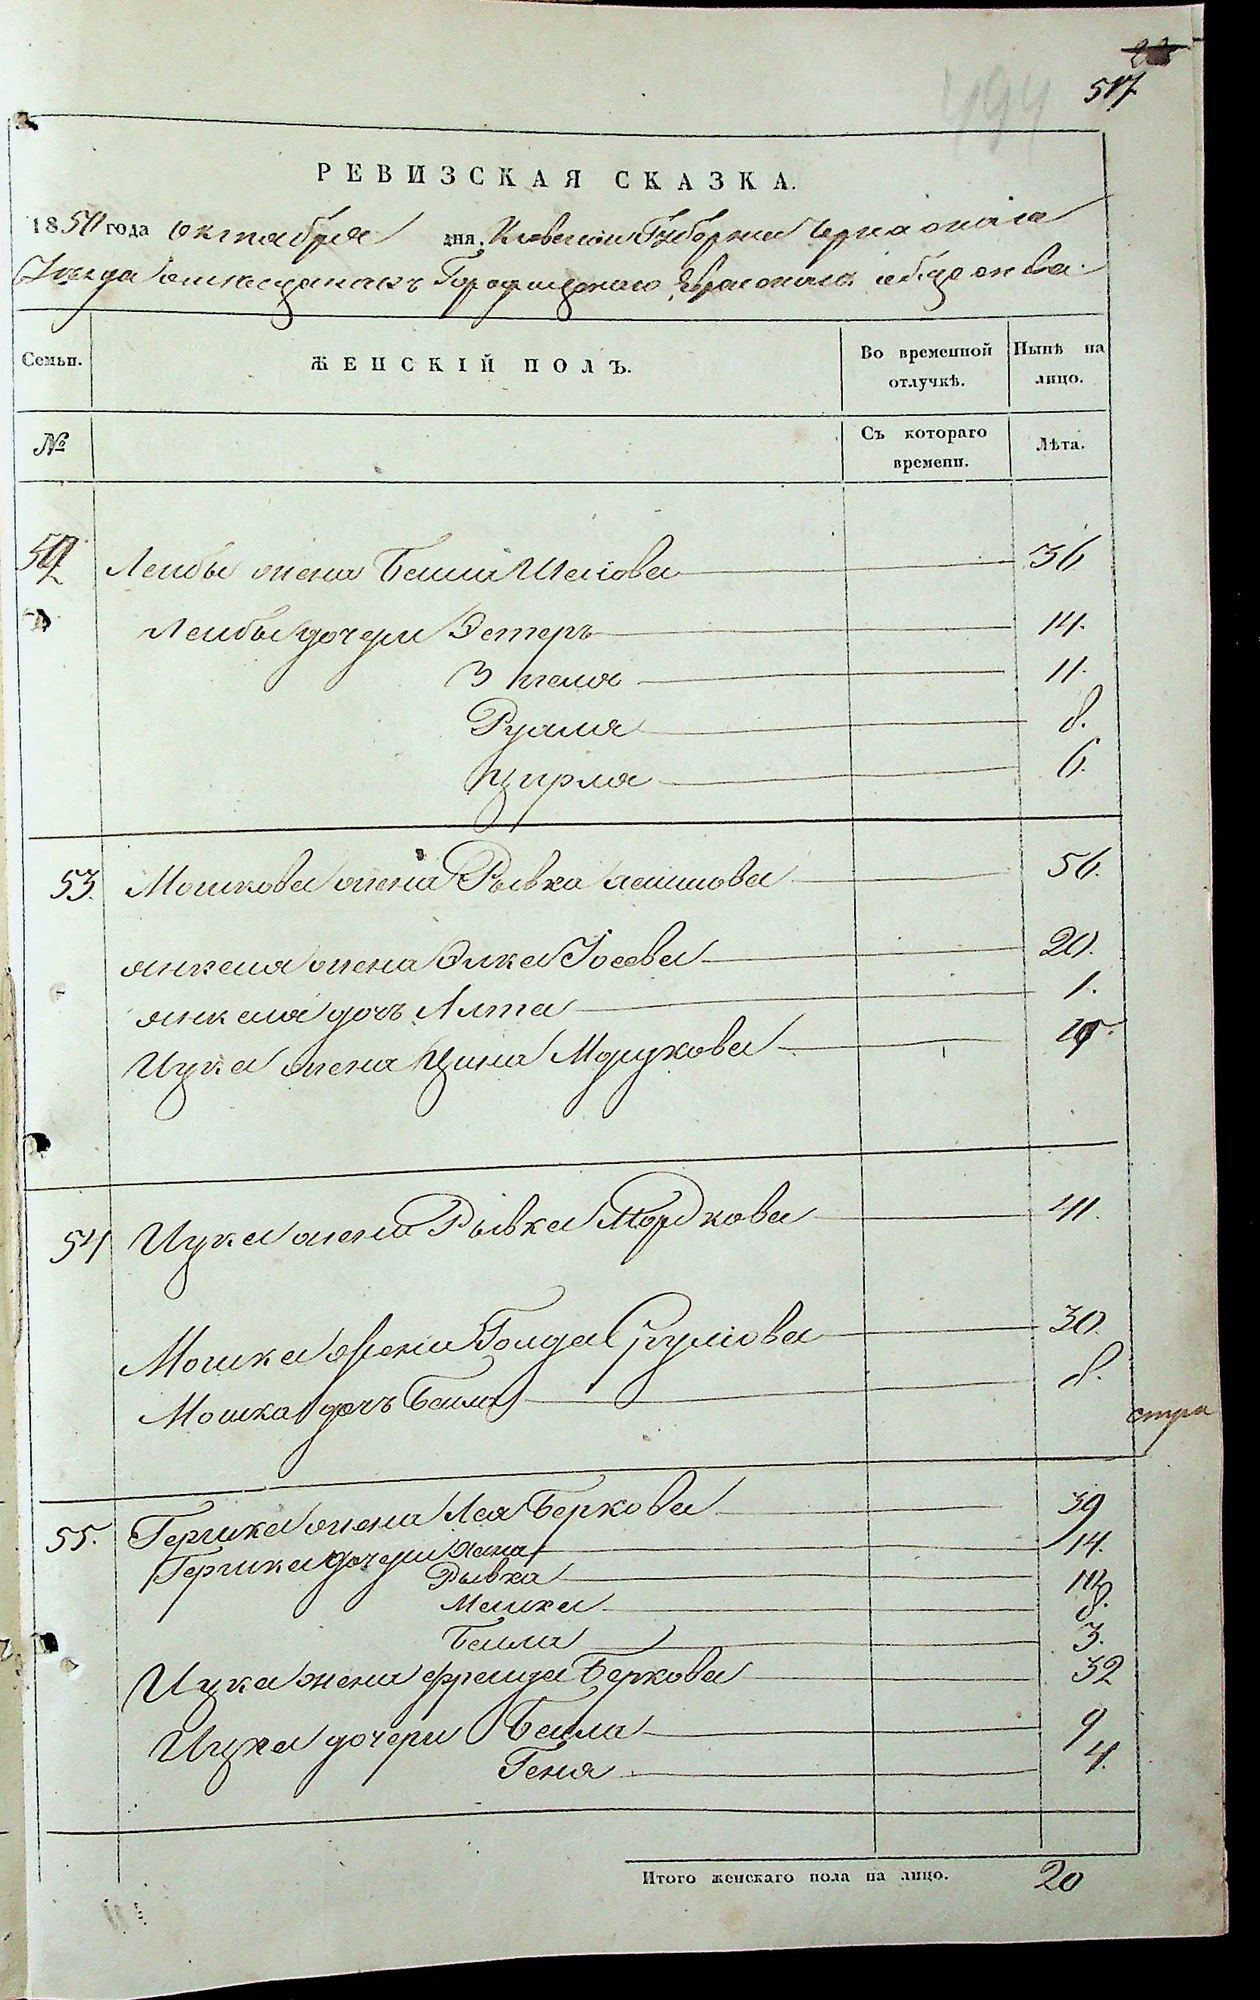 517
494
РЕВИЗСКАЯ СКАЗКА.
1850 года октября дня. Киевской Губернии Черкаскаго
Уезда о мещанахъ Городищенскаго Еврейскаго общества.
Семьи. ЖЕНСКІЙ ПОЛЪ. Во временной отлучкѣ. Нынѣ на лицо.
№ Съ котораго времени. Лѣта.
52 Лейбы жена Бейла 36
Лейбы дочери Эстеръ 14.
11.
8.
Цирля 6.
53. Мошкова жена Рывка 56.
Янкеля жена Элка Іосева 20.
Янкеля дочь Алта 1.
Ицка жена Цина Мордкова
54 Ицка жена Рывка Мордкова 41.
Мошка жена Голда Срулiова 30.
Мошка дочь Бейла 8.
стра
55. Гершка жена Лея Беркова 39
Гершка дочери Хана 14.
Рывка
Малка 8.
Бейла 3.
Ицка жена Фрейда Беркова 32
Ицка дочери Бейла 9
Геня 4.
Итого женскаго пола на лицо. 20